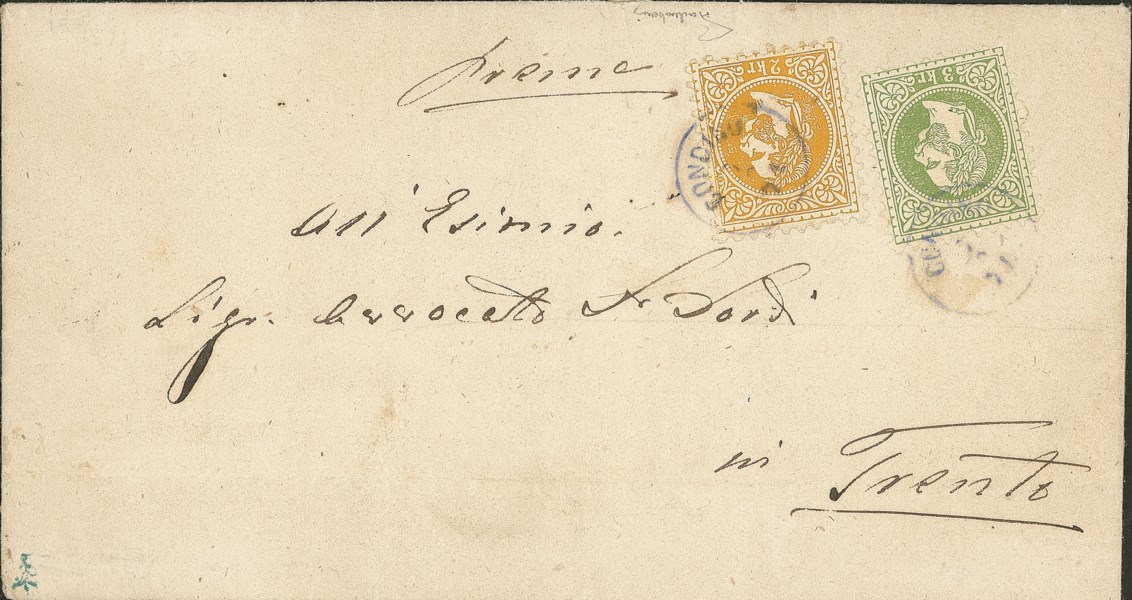 2 kr
3 kr
CONDINO
CON
All Esimio.
Sigr. Avvocato Dr Sordi
in Trento